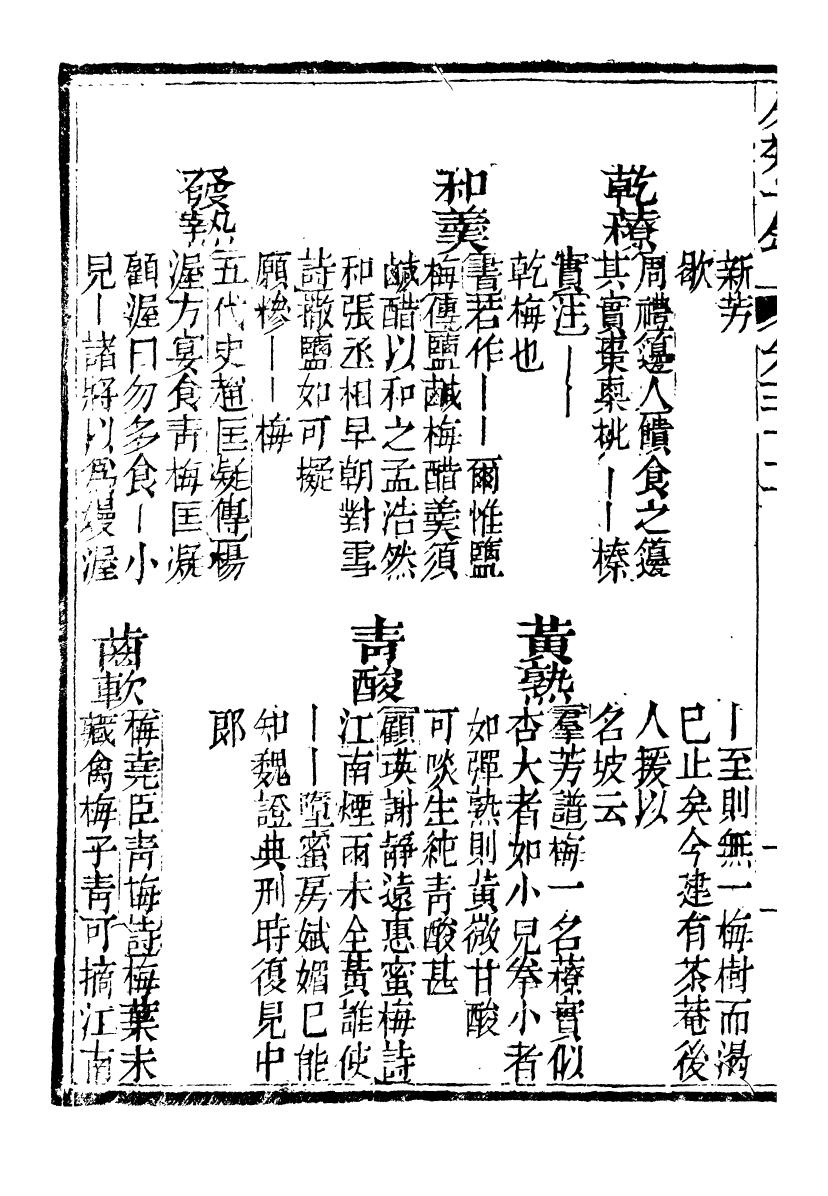 新芳
歇
乾䕩
周禮籩人饋食之籩
其實棗㮚桃丨丨榛
實注丨丨
乾梅也
和羹
書若作丨丨爾惟鹽
梅傳鹽鹹梅醋羹須
鹹醋以和之孟浩然
和張丞相早朝對雪
詩撒鹽如可擬
願糝丨丨梅
發熱
五代史趙匡凝傳楊
渥方宴食青梅匡凝
顧渥曰勿多食丨小
兒丨諸將以為嫚渥
丨至則無一梅樹而渴
巳止矣今建有茶菴後
人援以
名坡云
黃熟
羣芳譜梅一名䕩實似
杏大者如小兒拳小者
如彈熟則黃微甘酸
可啖生純青酸甚
青酸
顧瑛謝靜遠惠蜜梅詩
江南煙雨未全黃誰使
丨丨墮蜜房娬媚巳能
知魏證典刑時復見中
郎
齒軟
梅堯臣青梅詩梅葉未
藏禽梅子青可摘江南